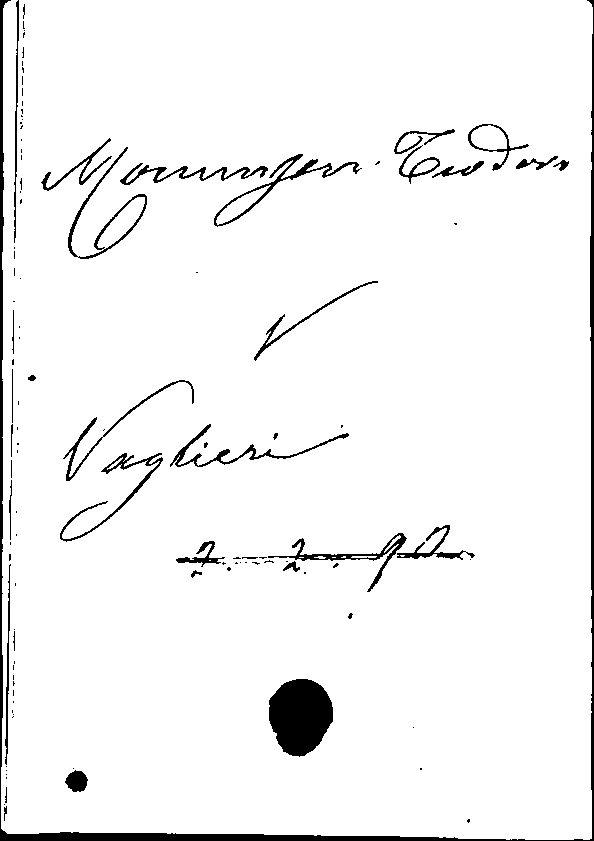 Mommsen. Teodoro
V
Vaglieri
2. 2. 90